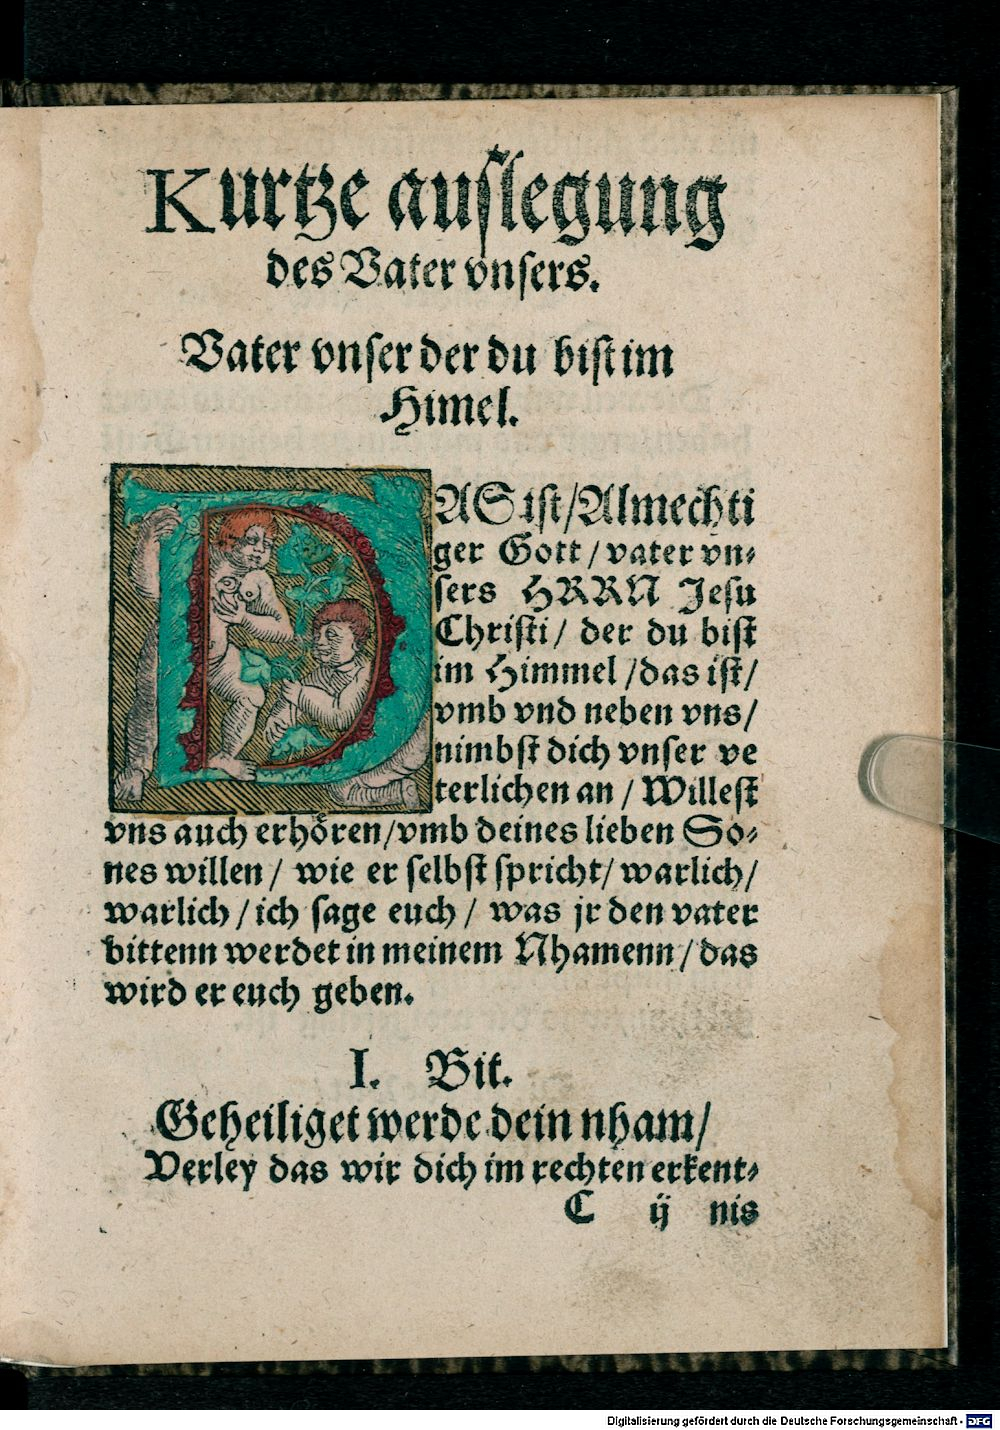 Kurtze auslegung
des Vater vnsers.
Vater vnser der du bist im
Himel.
DAS ist/Almechti
ger Gott/vater vn⸗
sers HRRN Jesu
Christi/ der du bist
im Himmel/das ist/
vmb vnd neben vns/
nimbst dich vnser ve
terlichen an/Willest
vns auch erhören/vmb deines lieben So⸗
nes willen/ wie er selbst spricht/warlich/
warlich/ich sage euch/ was jr den vater
bittenn werdet in meinem Nhamenn/das
wird er euch geben.
I. Bit.
Geheiliget werde dein nham/
Verley das wir dich im rechten erkent⸗
C ij nis
Digitalisierung gefördert durch die Deutsche Forschungsgemeinschaft - DFG